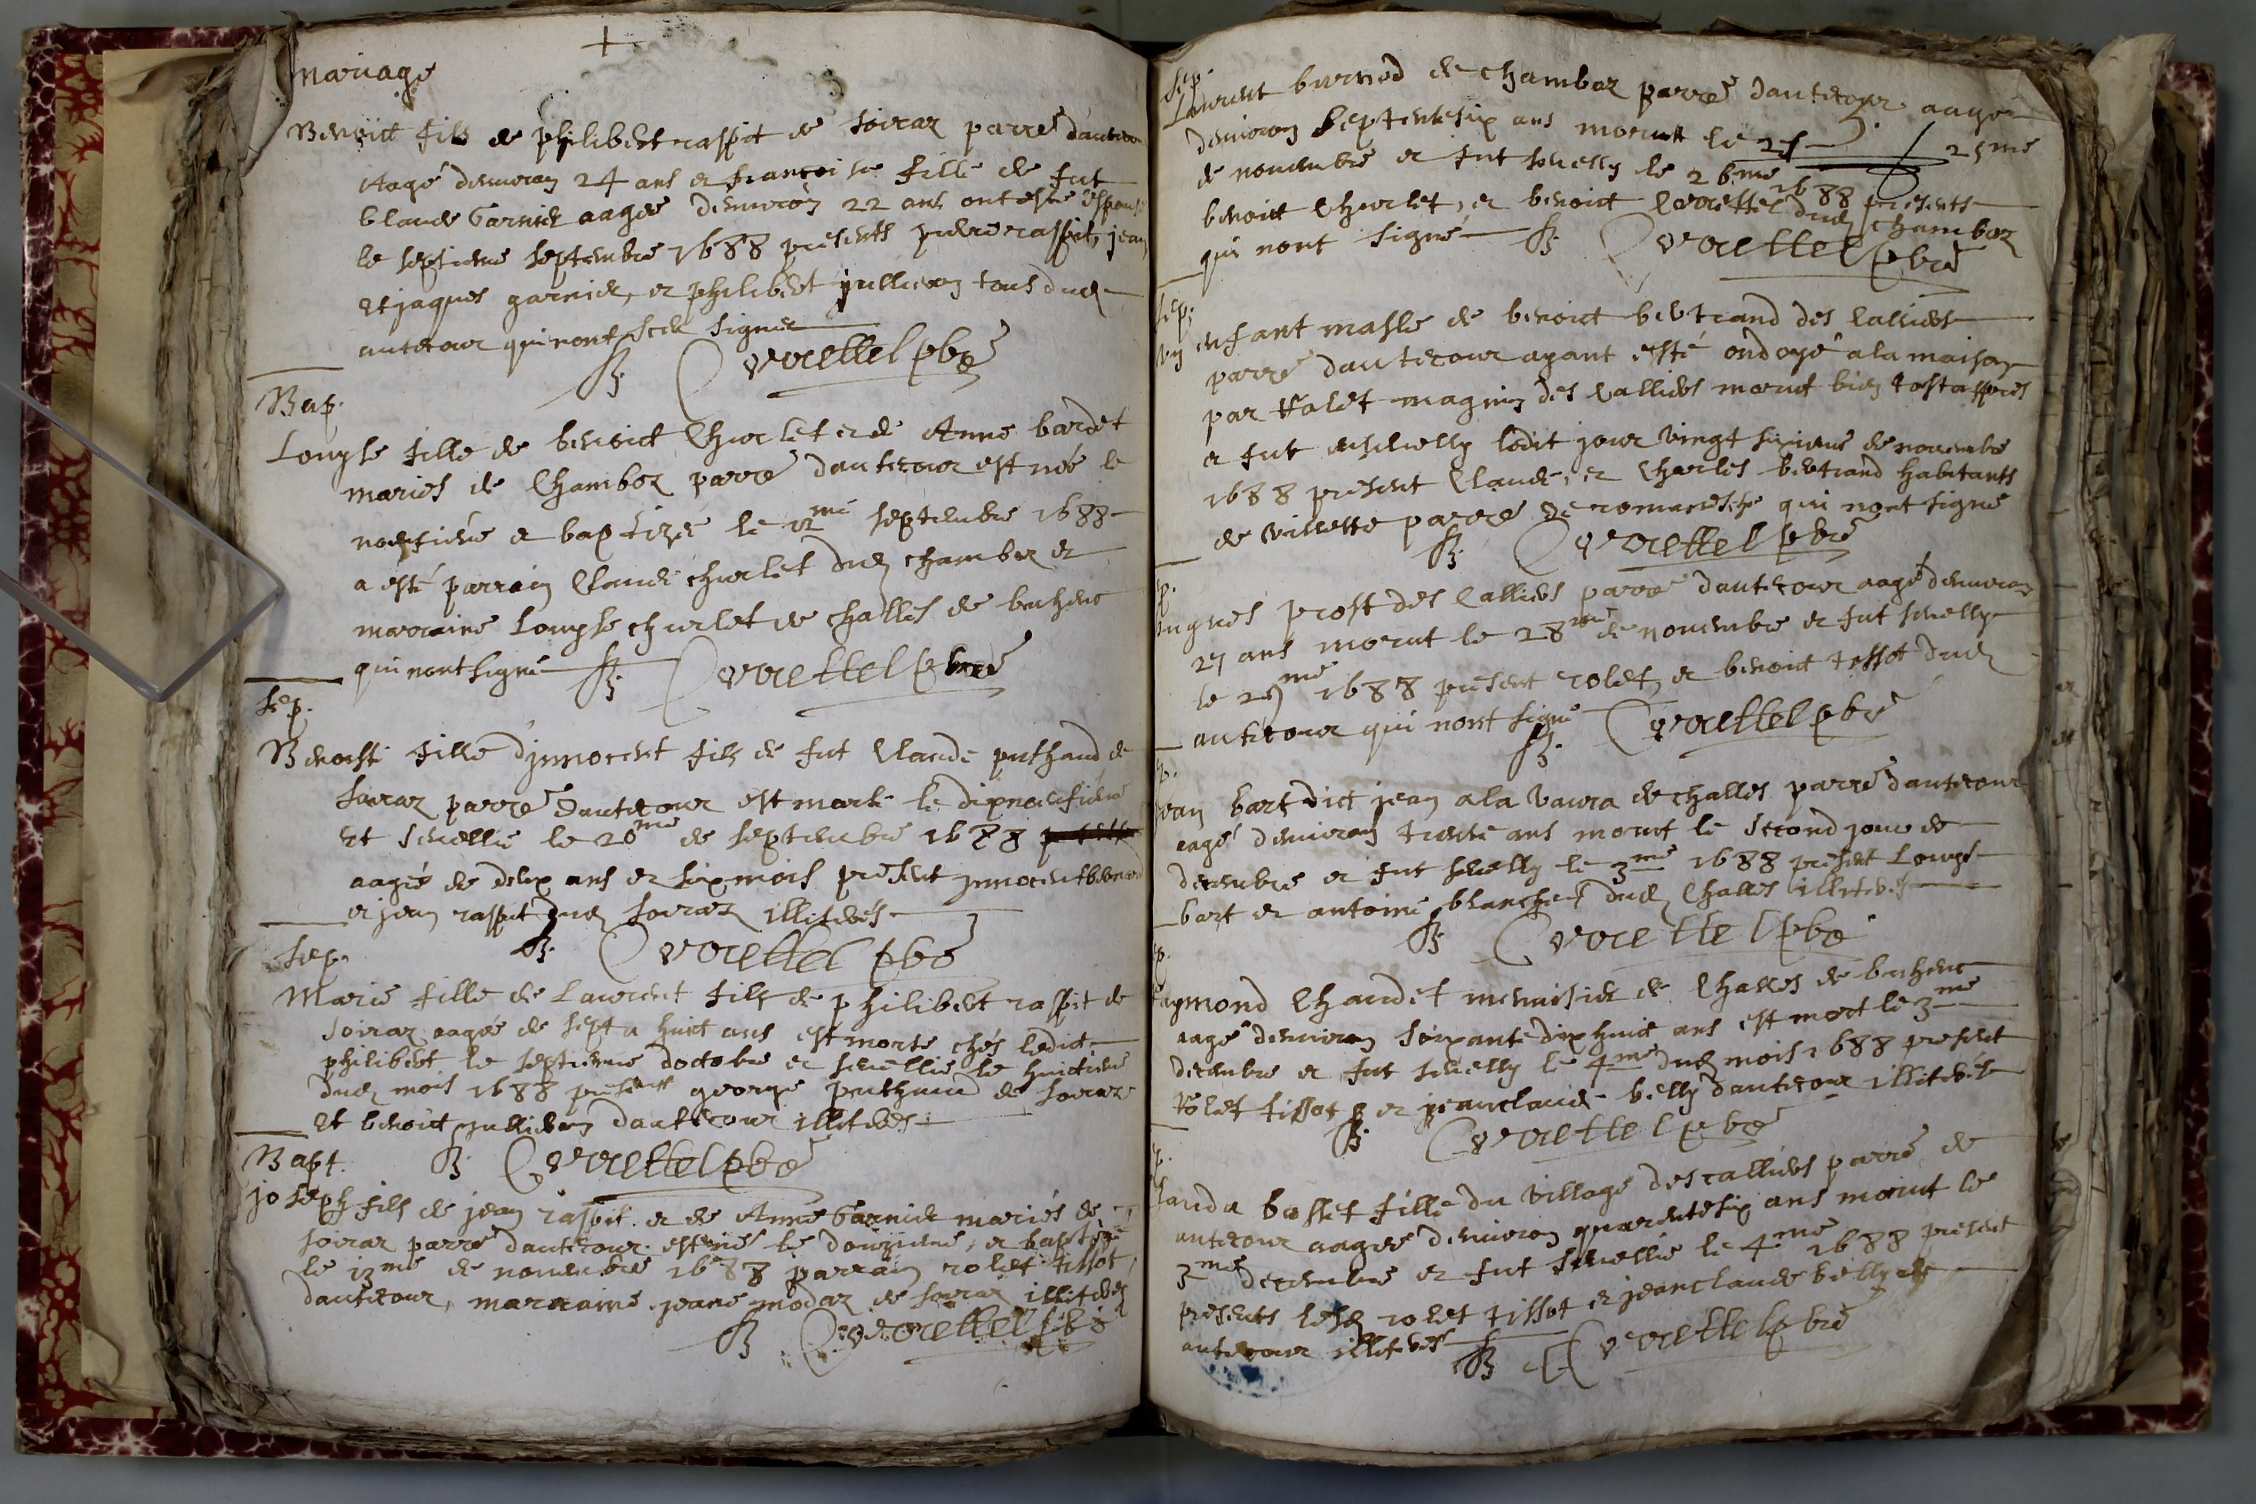 mariage
Benoict fils de philibert raspit de soiraz parre dauteco
Aagé denuiron 24 ans et françoise fille de fut
Claude Garnier aagée denuiron 22 ans ont esté espousé
le septieme septembre 1688 presents pierre raspit, jean
et jaques garnier, et philibert jullieron tous dud
autecour qui nont sceu signer
Curettel pbre
Bap.
Louyse fille de benoict Churlet et de Anne bardet
mariés de Chamboz parre dautecour est née le
neufieme et baptizée le 12me septembre 1688
a esté parrain Claude churlet dud chamboz et
marraine Louyse churlet de challes de buhenc
qui nont signé Curettel pbre
sep.
Benoiste fille d'jnnocent fils de fut Claude puthaud de
soiraz parre dautecour est morte le dixneufieme
Et seuellie le 20me de septembre 1688
aagée de deux ans et six mois present jnnocent
et jean raspit dud soiraz illiterés
Curettel pbre
sep.
Marie fille de Laurent fils de philibert raspit de
soiraz aagée de sept a huict ans est morte chés ledict
philibert le septieme doctobre et seuellie le huictieme
dud mois 1688 present george puthaud de soiraz
Et benoict jullieron dautecour illiterés
Curettel pbre
Bapt.
joseph fils de jean raspit et de Anne Garnier mariés de
soiraz parre dautecour est né le douzieme, et baptizé
le 13me de nouembre 1688 parrain rolet tissot
dautecour, marraine jeane modaz de soiraz illiterés
Curettel pbre
sep.
Laurent burnod de chamboz parre dautecour aagé
denuiron septentesix ans morut le 25me
de nouembre et fut seuelly le 26me 1688 presents
benoict Churlet, et benoict Curettel dud chamboz
qui nont signé Curettel pbre
sep.
Vn enfant masle de benoict bertrand des Calliers
parre dautecour ayant esté ondoyé a la maison
par Rolet magnin des Calliers morut bien tost appres
et fut enseuelly ledit jour vingt sixieme de nouembre
1688 present Claude, et Charles bertrand habitants
de villette parre de romanesche qui nont signé
Curettel pbre
hugues prost des Calliers parre dautecour aagé denuiron
27 ans morut le 28me de nouembre et fut seuelly
le 29me 1688 present rolet, et benoict tissot dud
autecour qui nont signé Curettel pbre
jean bart dict jean a la vaura de challes parre dautecour
aagé denuiron trente ans morut le second jour de
decembre et fut seuelly le 3me 1688 present Louys
bart et antoine blanchet dud Challes illiterés
Curettel pbre
Raymond Chaudet menuisier de Challes de buhenc
aagé denuiron soixante dix huict ans est mort le 3me
decembre et fut seuelly le 4me dud mois 1688 present
Rolet tissot et jeanclaude belly dautecour illiterés
Curettel pbre
Clauda bosset fille du village des calliers parre de
autecour aagée denuiron quarentesix ans morut le
3me decembre et fut seuellie le 4me 1688 present
presents lesd rolet tissot et jeanclaude belly de
autecour illiterés Curettel pbre